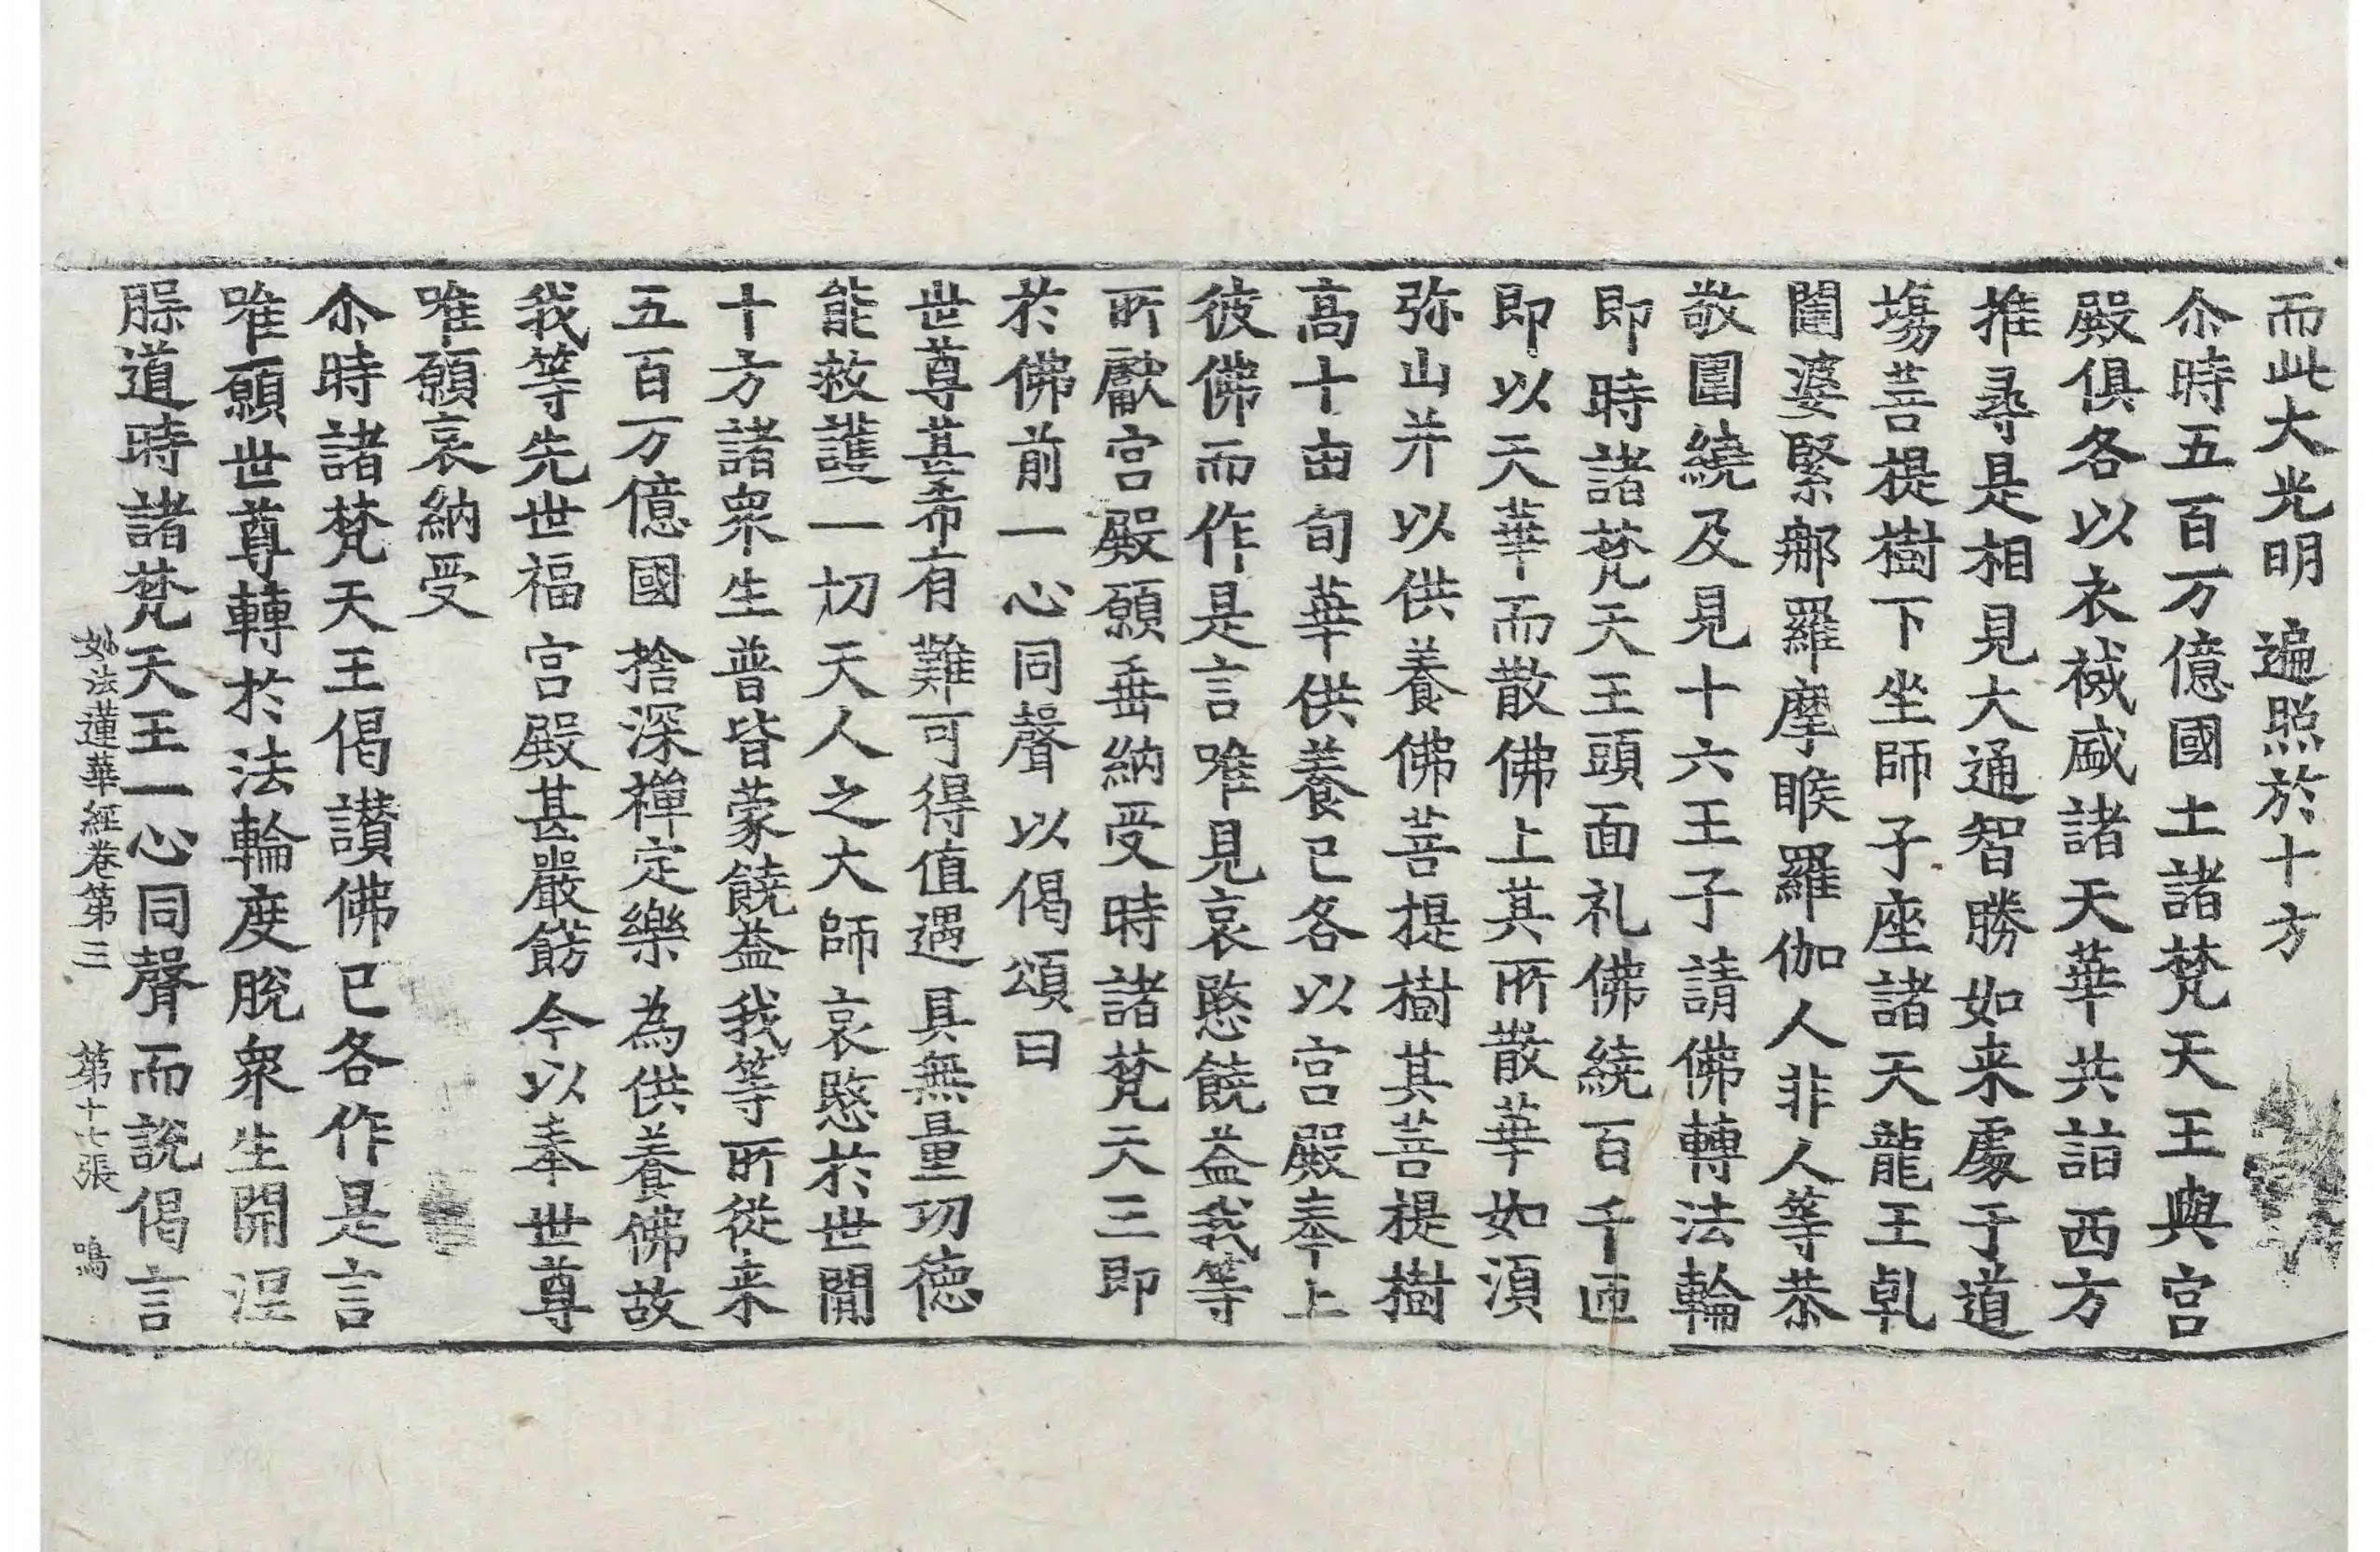 而此大光明 遍照於十方
尒時五百万億國土諸梵天王與宮
殿俱各以衣裓盛諸天華共詣西方
推尋是相見大通智勝如来處于道
塲菩提樹下坐師子座諸天龍王乹
闥婆緊那羅摩睺羅伽人非人等恭
敬圍繞及見十六王子請佛轉法輪
即時諸梵天王頭面礼佛繞百千匝
即以天華而散佛上其所散華如湏
弥山并以供養佛菩提樹其菩提樹
高十由旬華供養已各以宮殿奉上
彼佛而作是言唯見哀愍饒益我等
所獻宮殿願垂納受時諸梵天王即
於佛前一心同聲以偈頌曰
世尊甚希有 難可得值遇 具無量功德
能救護一切 天人之大師 哀愍於世間
十方諸衆生 普皆蒙饒益 我等所從来
五百万億國 捨深禪定樂 為供養佛故
我等先世福 宮殿甚嚴餝 今以奉世尊
唯願哀納受
尒時諸梵天王偈讃佛已各作是言
唯願世尊轉於法輪度脫衆生開涅
槃道時諸梵天王一心同聲而說偈言
妙法蓮華經卷第三 第十七張 鳴